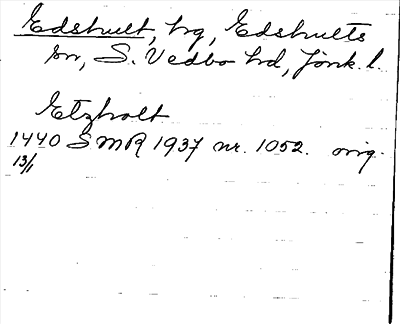 Edshult, hg, Edshults
sn, S. Vedbo hd, Jönk. l.
Etzholt
1440 SMR 1937 nr. 1052. orig.
13/1